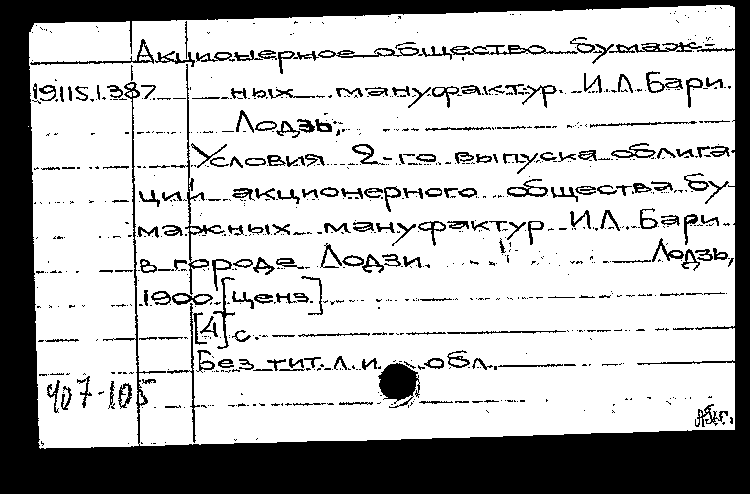 Акционерное общество бумаж-
19.115.1.387 ных мануфактур И.Л. Бари.
Лодзь;
Условия 2-го выпуска облига-
ций акционерного общества бу-
мажных мануфактур И.Л. Бари
в городе Лодзи. Лодзь,
1900 [ценз.]
[4] с.
Без тит. л. и обл.
407-105